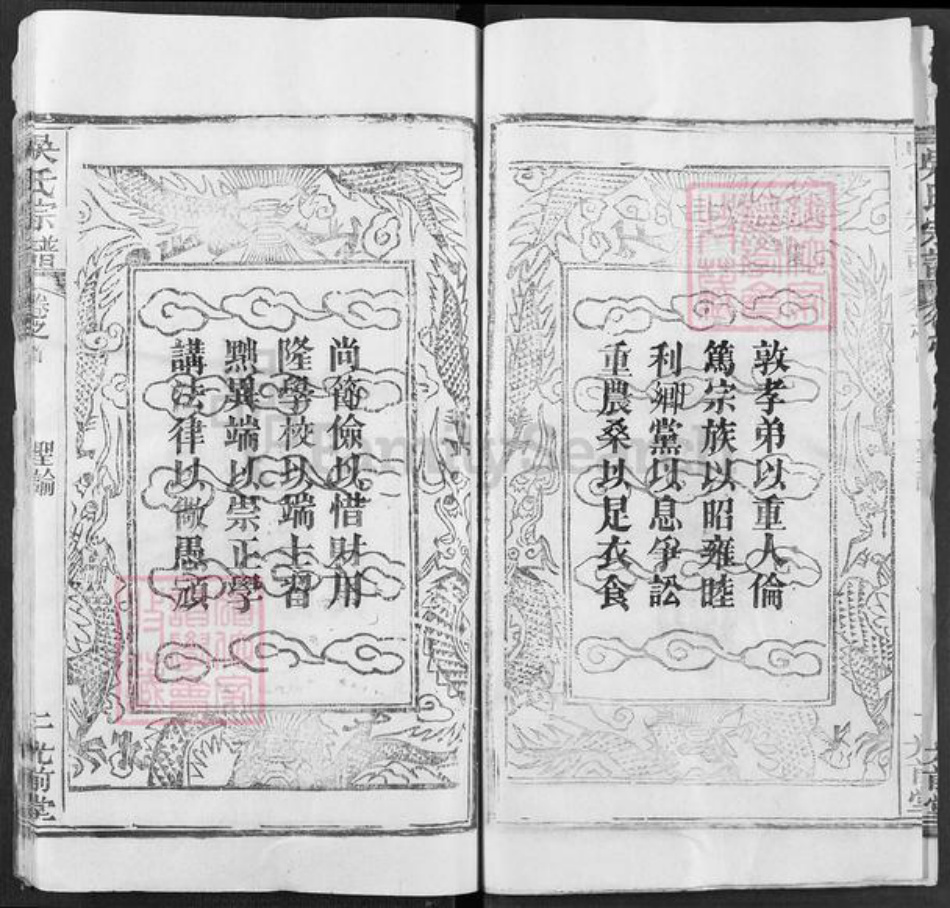 敦孝弟以重人倫
篤宗族以昭雍睦
利鄉黨以息争訟
重農桑以足衣食
尚節儉以惜財用
隆學校以端士習
黜異端以崇正學
講法律以儆愚頑
吳氏宗譜
卷之首
聖諭
二
光前堂
FamilySearch